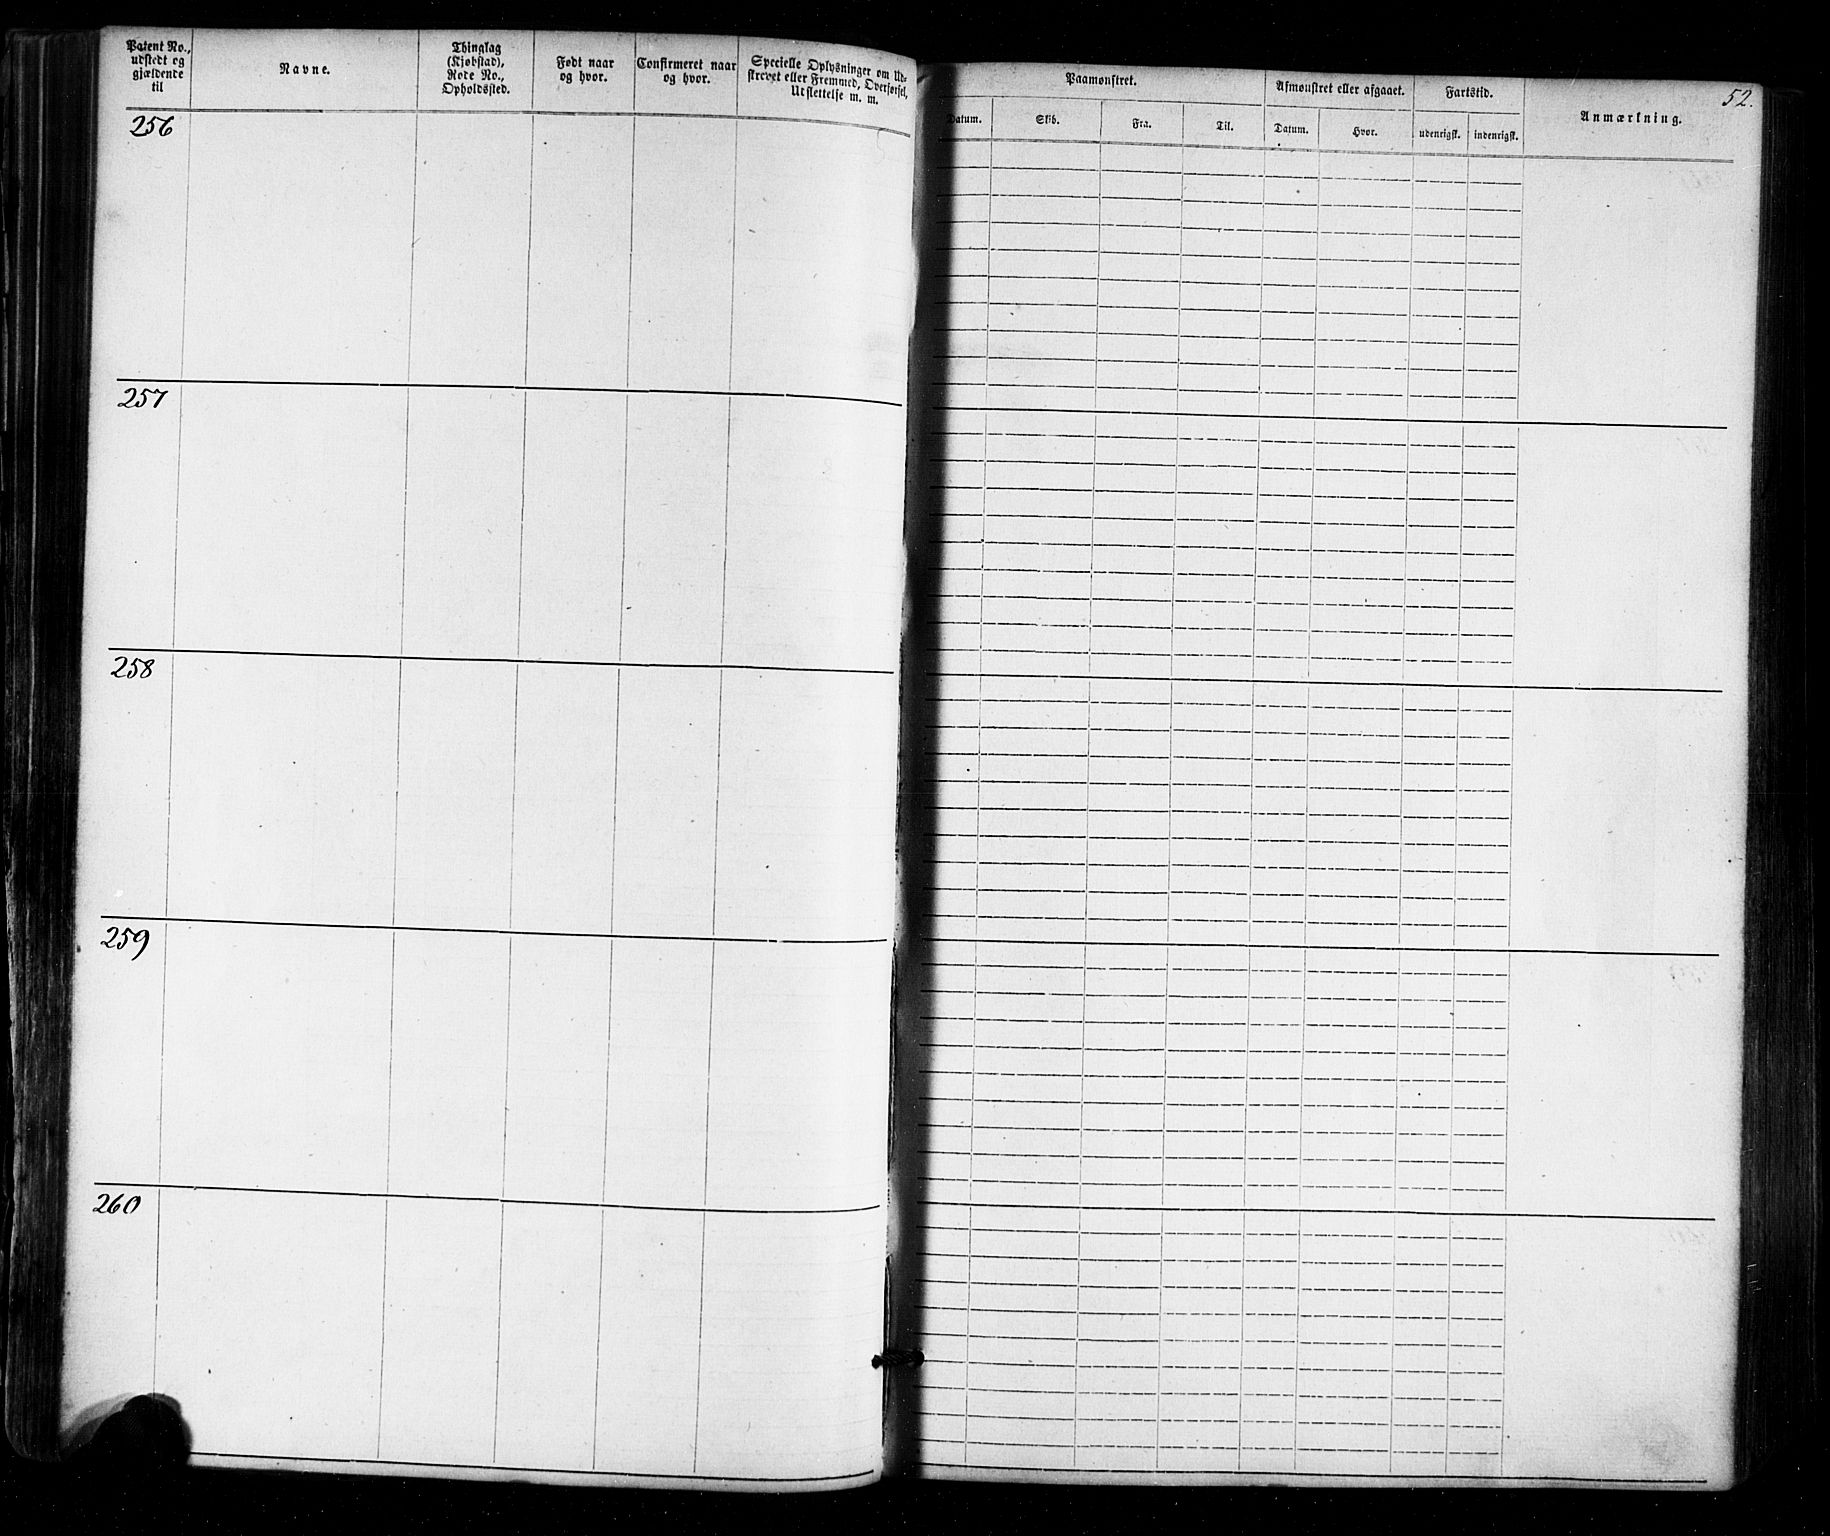 Patent No.,
udstedt og
gjældende
til
Navne.
Thinglag
(Kjøbstad),
Rode No.,
Opholdssted.
Født naar
og hvor.
Confirmeret naar
og hvor.
Specielle Oplysninger om Ud-
skrevet eller Fremmed, Overførsel,
Udslettelse m. m.
256
257
258
259
260
52.
Paamønstret.
Afmønstret eller afgaaet.
Fartstid.
Anmærkning.
Datum.
Skib.
Fra.
Til.
Datum.
Hvor.
udenrigsk.
indenrigsk.